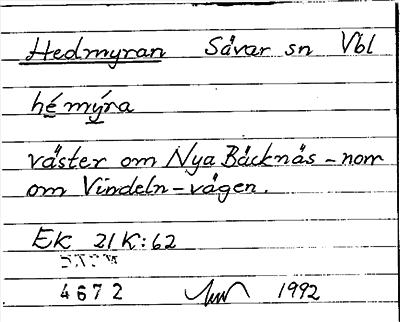 Hedmyran Sävar sn Vbl
hé mýra
väster om Nya Bäcknäs - nom
om Vindeln-vägen.
Ek 21K:62
4672 1992